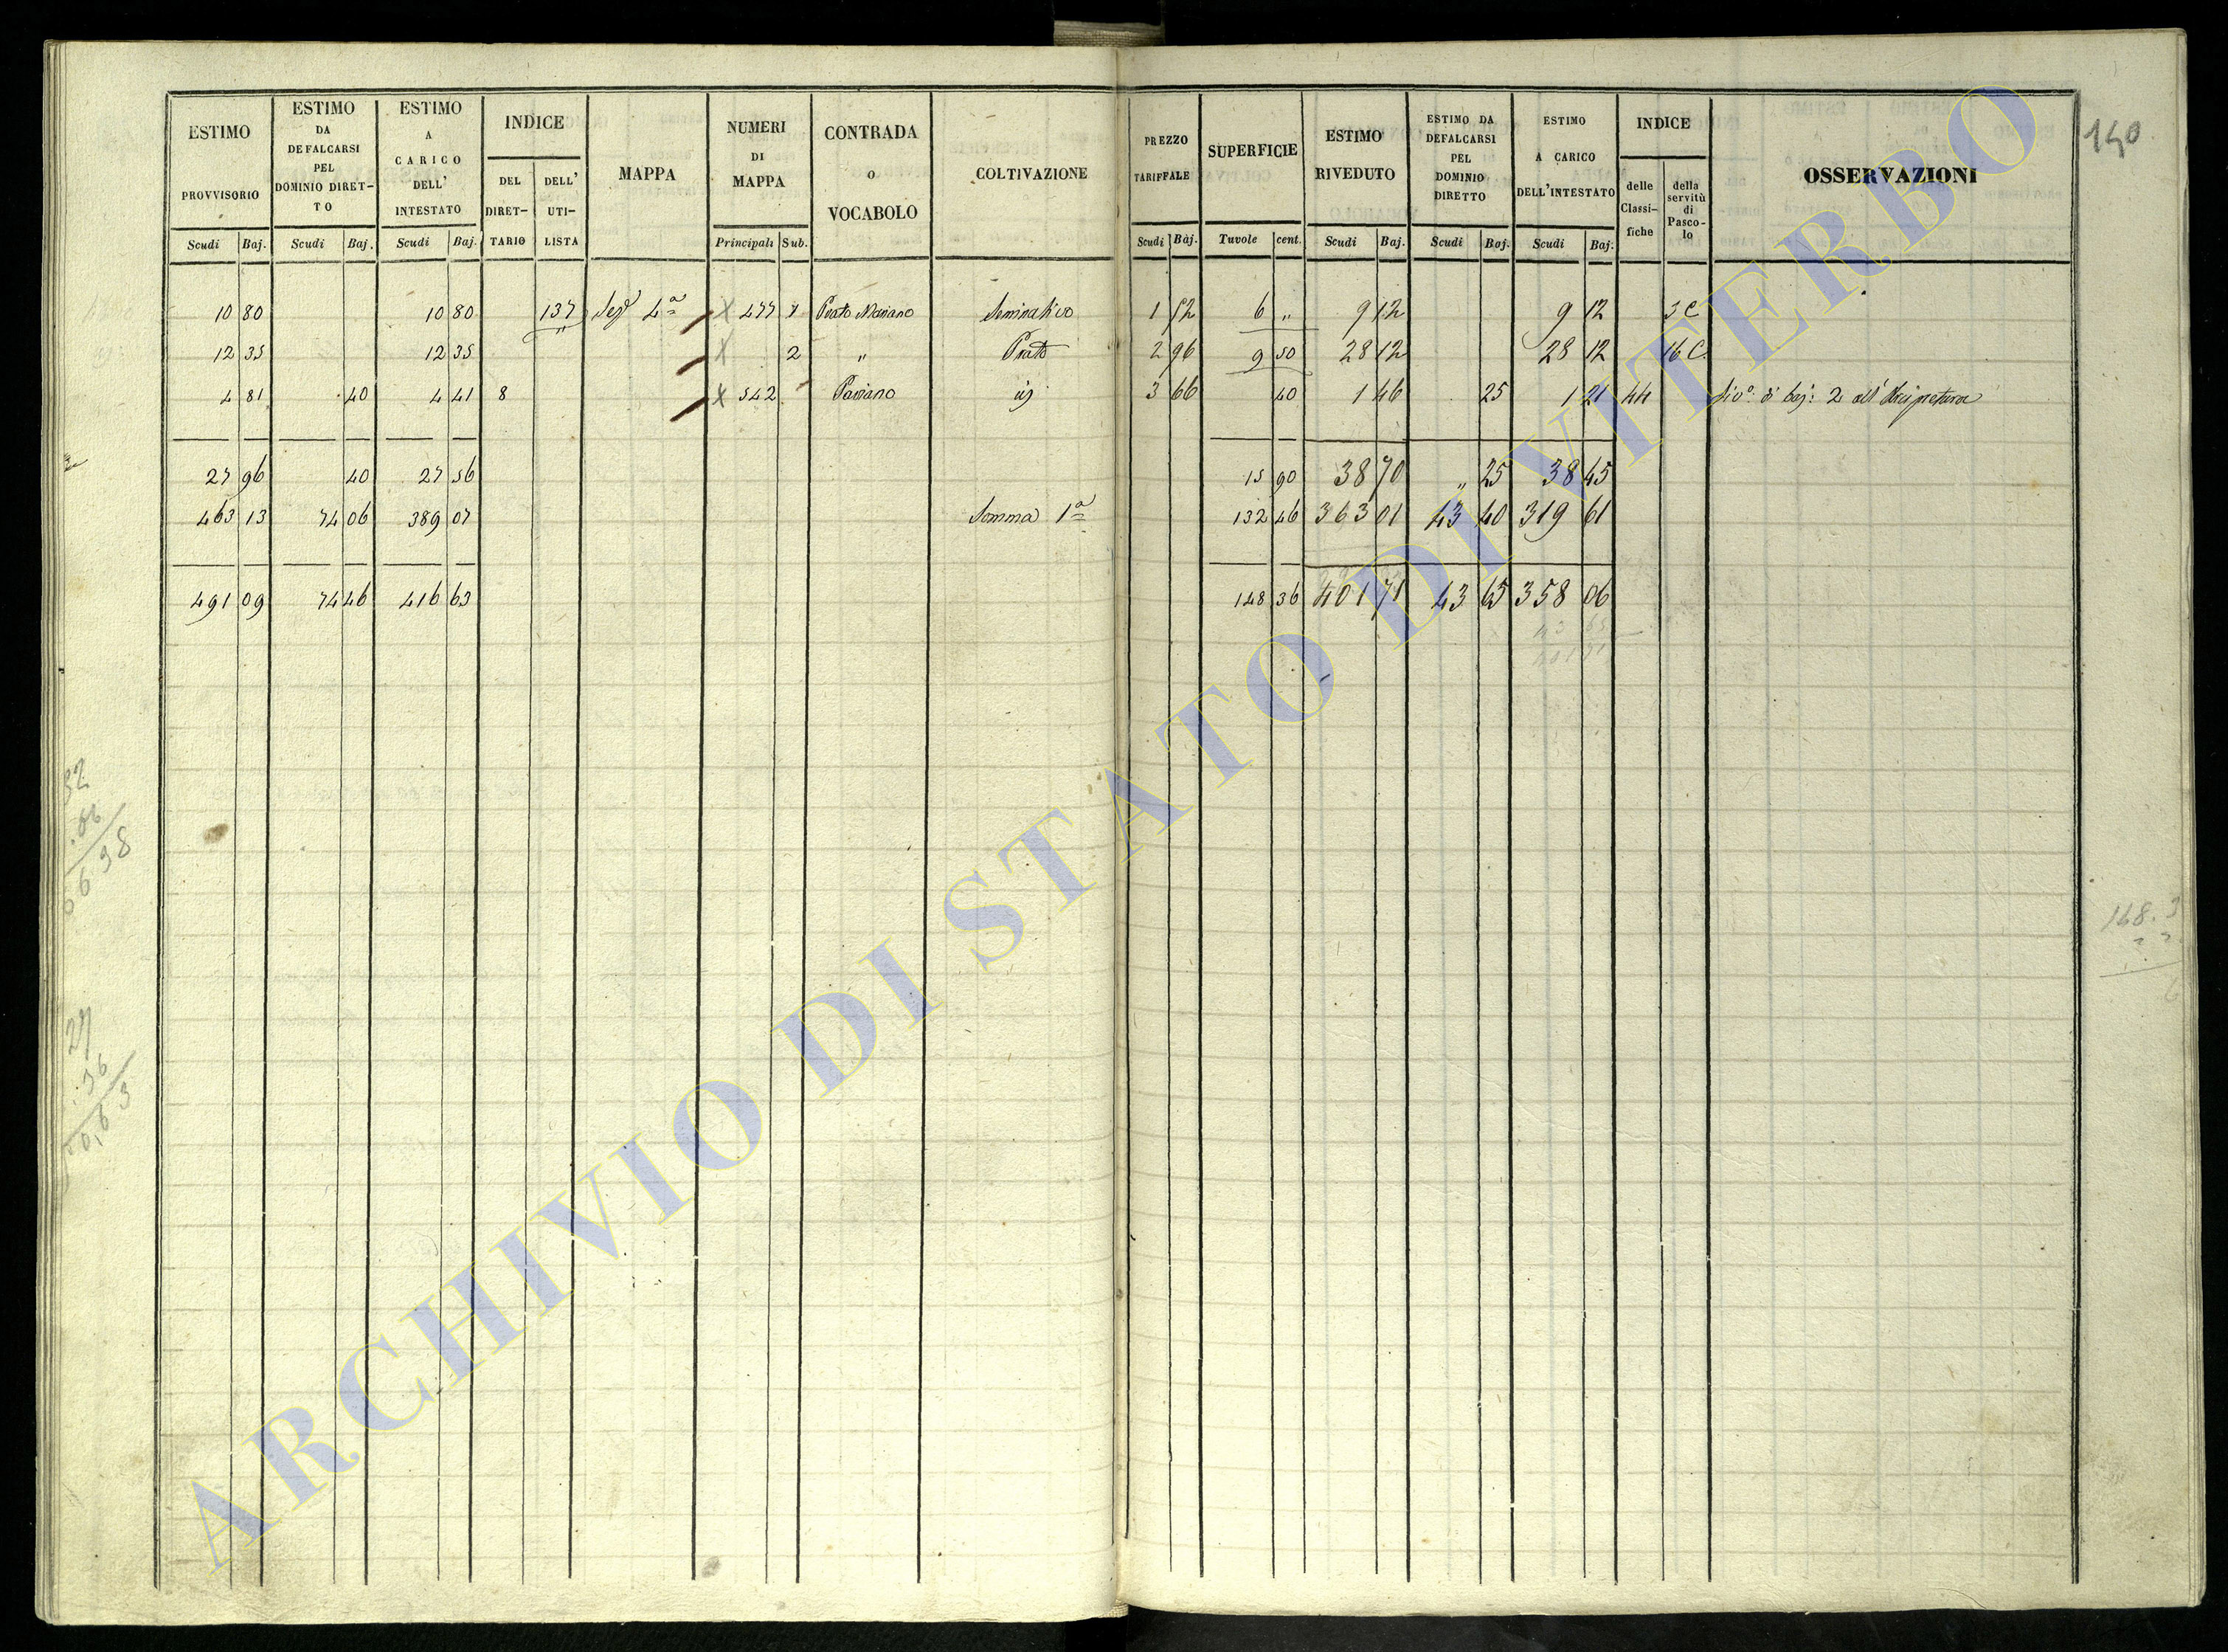 140
ESTIMO PROVVISORIO Scudi Baj. | ESTIMO DA DEFALCARSI PEL DOMINIO DIRET-TO Scudi Baj. | ESTIMO A CARICO DELL' INTESTATO Scudi Baj. | INDICE DEL DIRET-TARIO | DELL' UTI-LISTA | MAPPA | NUMERI DI MAPPA Principali Sub. | CONTRADA O VOCABOLO | COLTIVAZIONE | PREZZO TARIFFALE Scudi Baj. | SUPERFICIE Tavole cent. | ESTIMO RIVEDUTO Scudi Baj. | ESTIMO DA DEFALCARSI PEL DOMINIO DIRETTO Scudi Baj. | ESTIMO A CARICO DELL'INTESTATO Scudi Baj. | INDICE delle Classi-fiche | della servitù di Pasco-lo | OSSERVAZIONI
10 80 | 10 80 | 137 | Sez 4ª | 477 1 | Prato Mariano | Seminativo | 1 52 | 6 „ | 9 12 | 9 12 | 3 C
12 35 | 12 35 | 2 | „ | Prato | 2 96 | 9 50 | 28 12 | 28 12 | 16 C.
4 81 | 40 | 4 41 | 8 | 542 | | 3 66 | 40 | 1 46 | 25 | 1 21 | 44 | di baj: 2 all'
27 96 | 40 | 27 56 | 15 90 | 38 70 | „ 25 | 38 45
463 13 | 74 06 | 389 07 | Somma 1ª | 132 46 | 363 01 | 43 40 | 319 61
491 09 | 74 46 | 416 63 | 148 36 | 401 71 | 43 65 | 358 06
43 65
401 71
ARCHIVIO DI STATO DI VITERBO